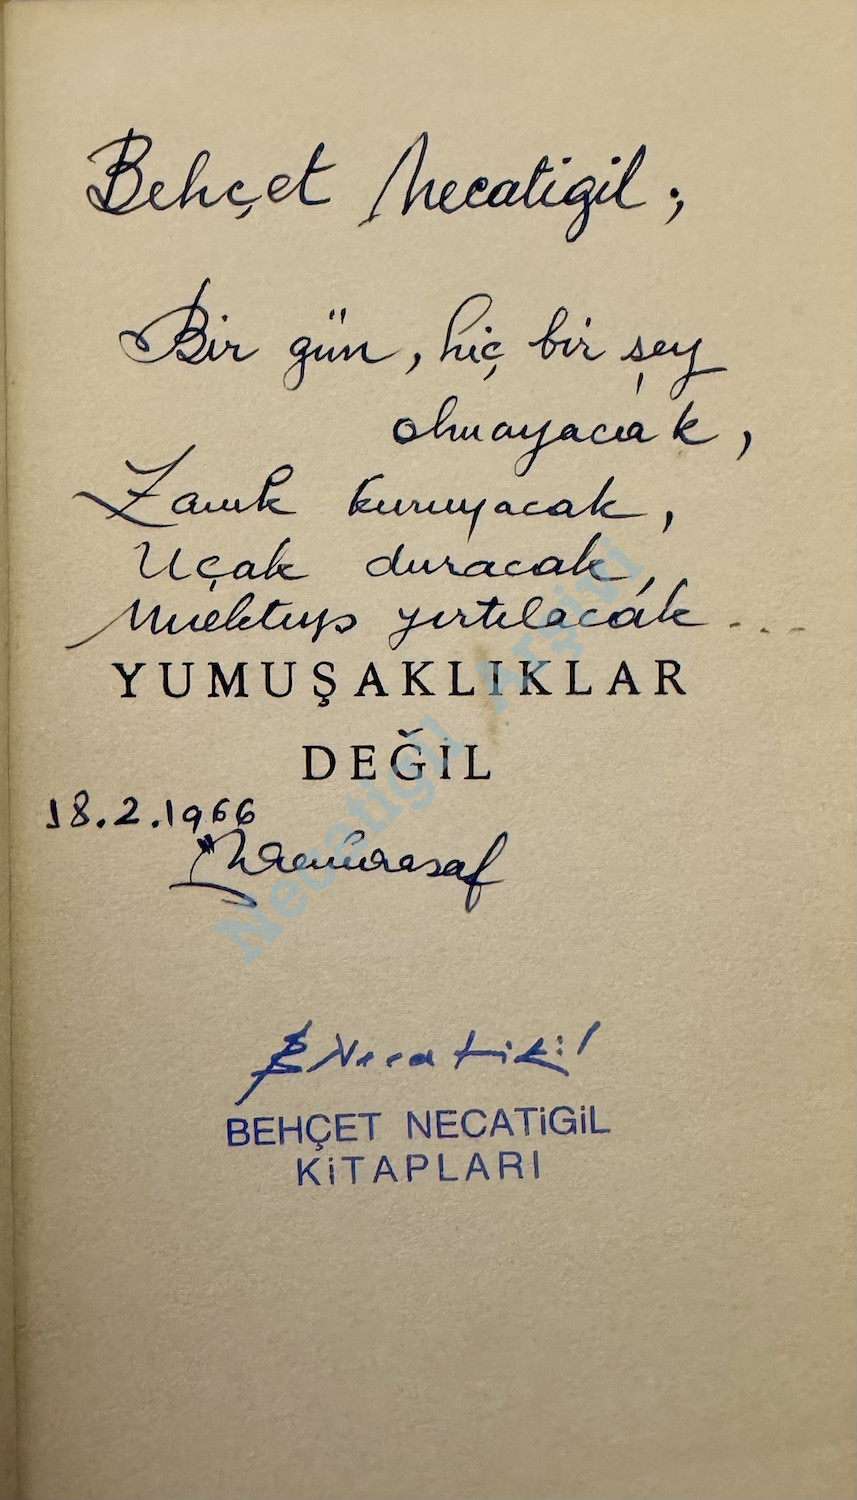 Behçet Necatigil;
Bir gün, hiç bir şey
olmayacak,
Zamk kuruyacak,
Uçak duracak,
Mektup yırtılacak...
YUMUŞAKLIKLAR
DEĞİL
18.2.1966
Özdemirasaf
BNecatigil
BEHÇET NECATiGiL
KiTAPLARI
Necatigil Arşivi